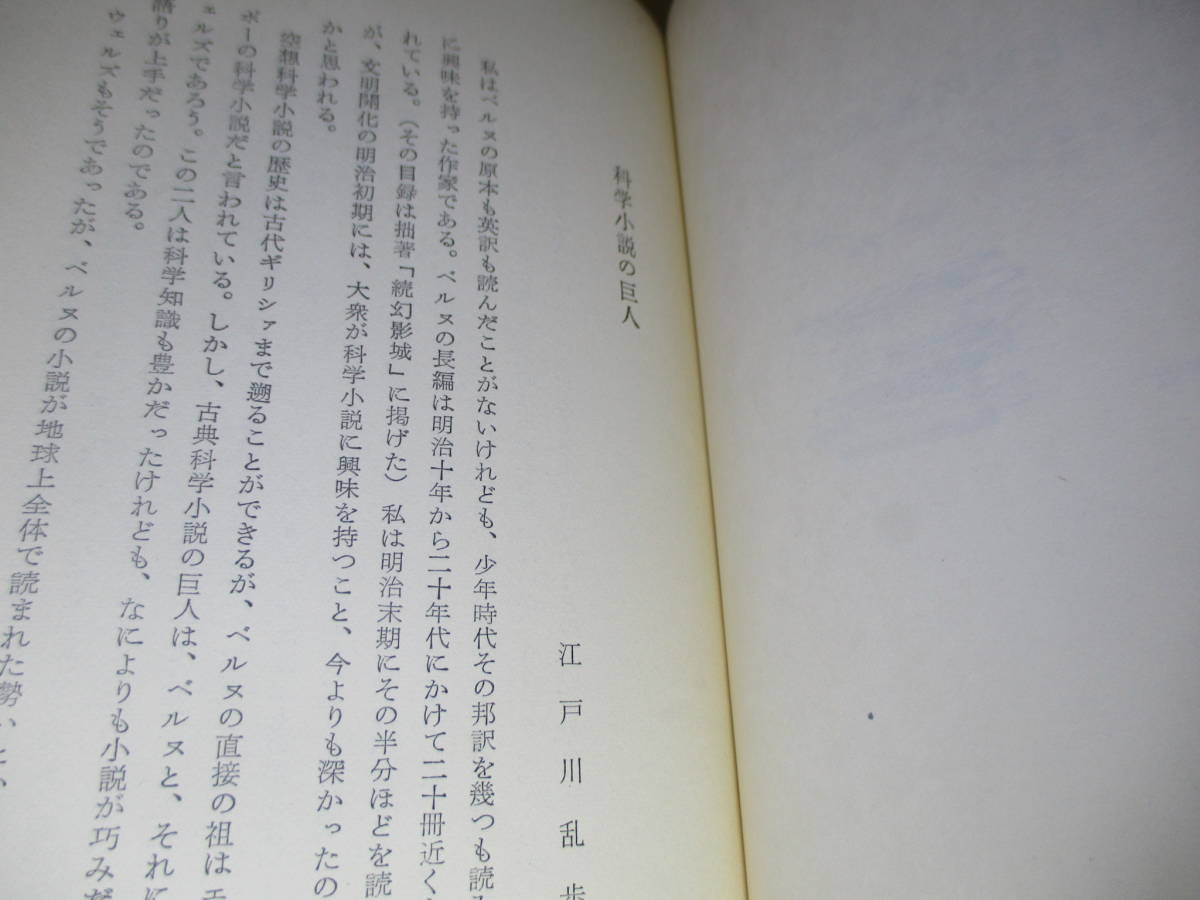 科学小説の巨人
江戸川乱歩
私はベルヌの原本も英訳も読んだことがないけれども、少年時代その邦訳を幾つも読み
に興味を持った作家である。ベルヌの長編は明治十年から二十年代にかけて二十冊近く
れている。(その目録は拙著「続幻影城」に掲げた)私は明治末期にその半分ほどを読
が、文明開化の明治初期には、大衆が科学小説に興味を持つこと、今よりも深かったの
かと思われる。
空想科学小説の歴史は古代ギリシァまで遡ることができるが、ベルヌの直接の祖はエ
ポーの科学小説だと言われている。しかし、古典科学小説の巨人は、ベルヌと、それに
ェルズであろう。この二人は科学知識も豊かだったけれども、なによりも小説が巧みだ
語りが上手だったのである。
ウェルズもそうであったが、ベルヌの小説が地球上全体で読まれた勢いと、